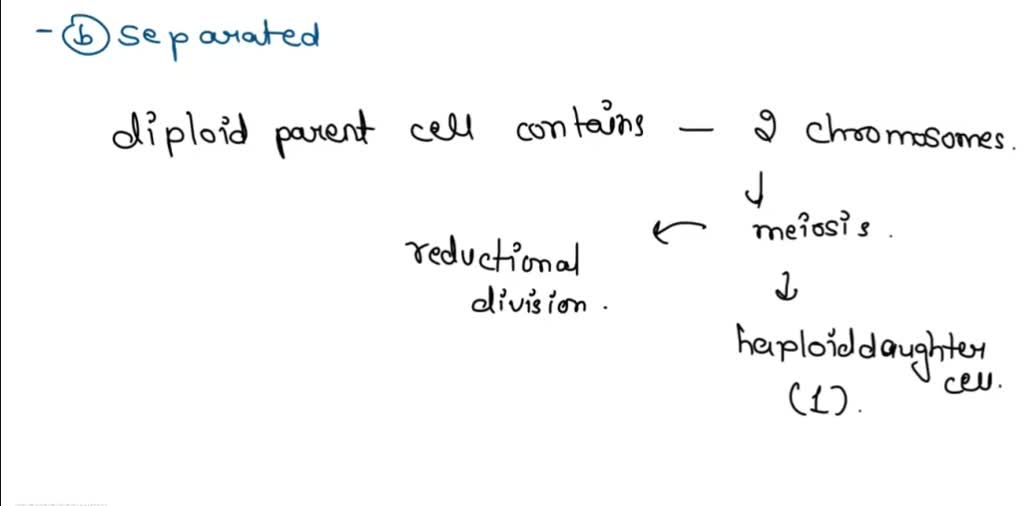 - b separated
diploid parent cell contains — 2 chromosomes.
↓
← meiosis.
reductional
division.
↓
haploid daughter
cell.
(1).